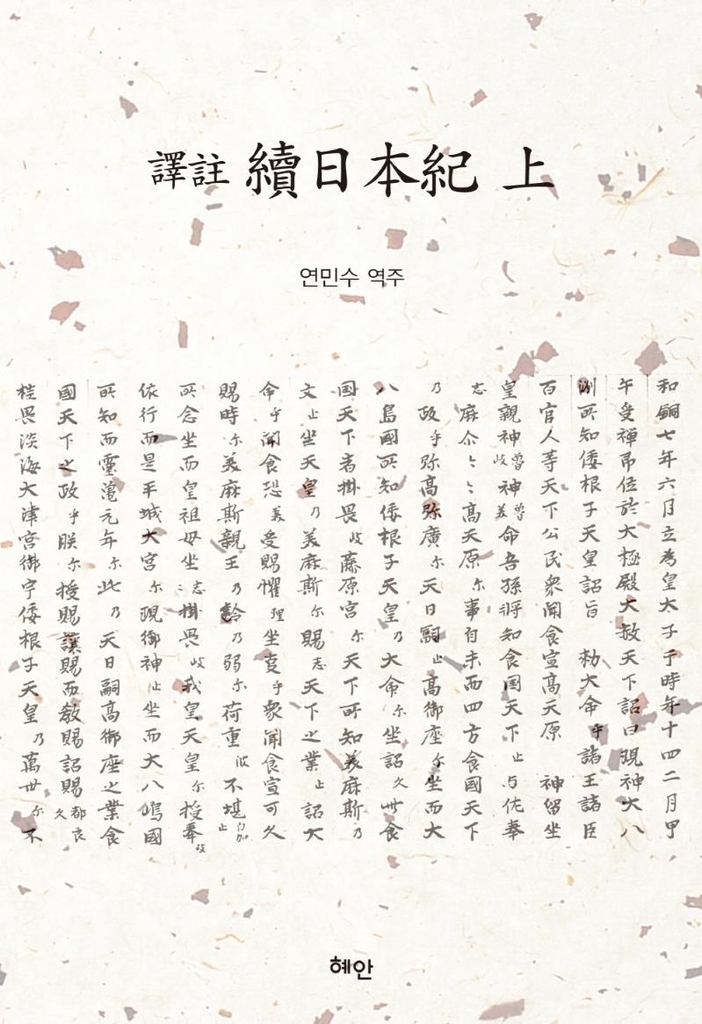 譯註 續日本紀 上
연민수 역주
和嗣七年六月立為皇太子于時年十四二月甲
午受禪即位於大極殿大赦天下詔曰現神大八
洲所知倭根子天皇詔旨 勅大命乎諸王諸臣
百官人等天下公民衆聞食宣高天原 神留坐
皇親神魯岐神魯美命吾孫将知食国天下止与佐奉
志麻尒〻〻高天原尓事自来而四方食國天下
乃政乎弥高弥廣尓天日嗣止高御座尓坐而大
八島國所知倭根子天皇乃大命尓坐詔久此食
國天下者掛畏岐藤原宮尓天下所知美麻斯乃
文止坐天皇乃美麻斯尓賜志天下之業止詔大
命乎聞食恐美受賜懼理坐事乎衆聞食宣可久
賜時尓美麻斯親王乃齡乃弱尓荷重波不堪自加止
所念坐而皇祖母坐志掛畏岐我皇天皇尓授奉岐
依行而是平城大宮尓現御神止坐而大八嶋國
所知而靈亀元年尓此乃天日嗣高御座之業食
國天下之政乎朕尓授賜讓賜而教賜詔賜都良久
桂畏淡海大津宮御宇倭根子天皇乃萬世尓不
혜안